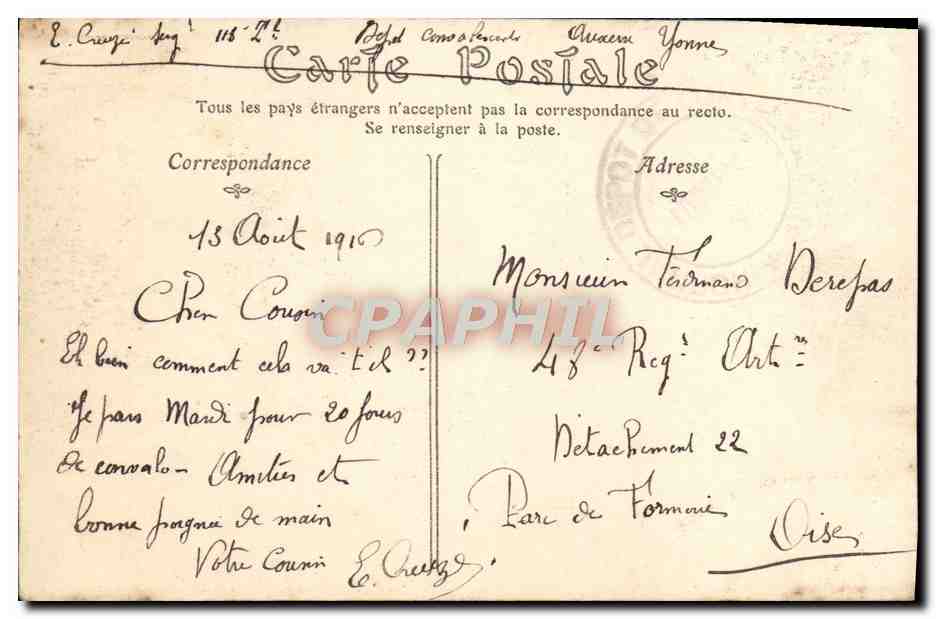 E. Creuzé 118 Dépôt convalescents Auxerre Yonne
Carte Postale
Tous les pays étrangers n'acceptent pas la correspondance au recto.
Se renseigner à la poste.
Correspondance
Adresse
DEPOT
13 Août 1916
Cher Cousin
Eh bien comment cela va-t'il ??
Je pars Mardi pour 20 jours
de convalo- Amitiés et
bonne poignée de main
Votre Cousin E. Creuzé
Monsieur Ferdinand Derepas
48e Reg.t Art.rie
Détachement 22
Parc de Formerie
Oise
CPAPHIL